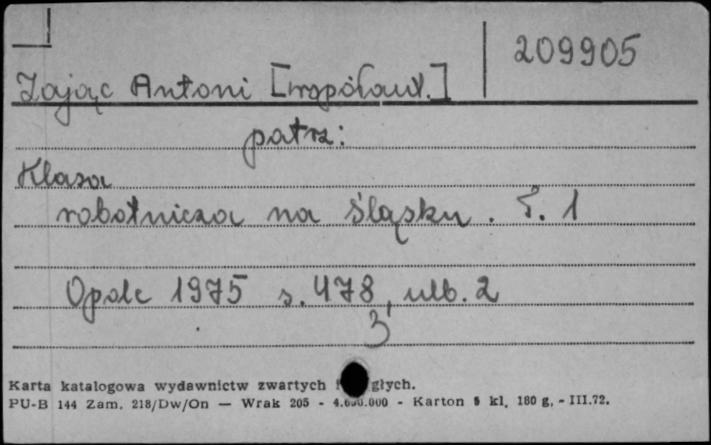 209905
Zając Antoni [współaut.]
patrz:
Klasa
robotnicza na Śląsku. T. 1
Opole 1975 s. 478, nlb. 2
3
Karta katalogowa wydawnictw zwartych głych.
PU-B 144 Zam. 218/Dw/On — Wrak 205 - 4.000 - Karton kl. 180 g. - III.72.